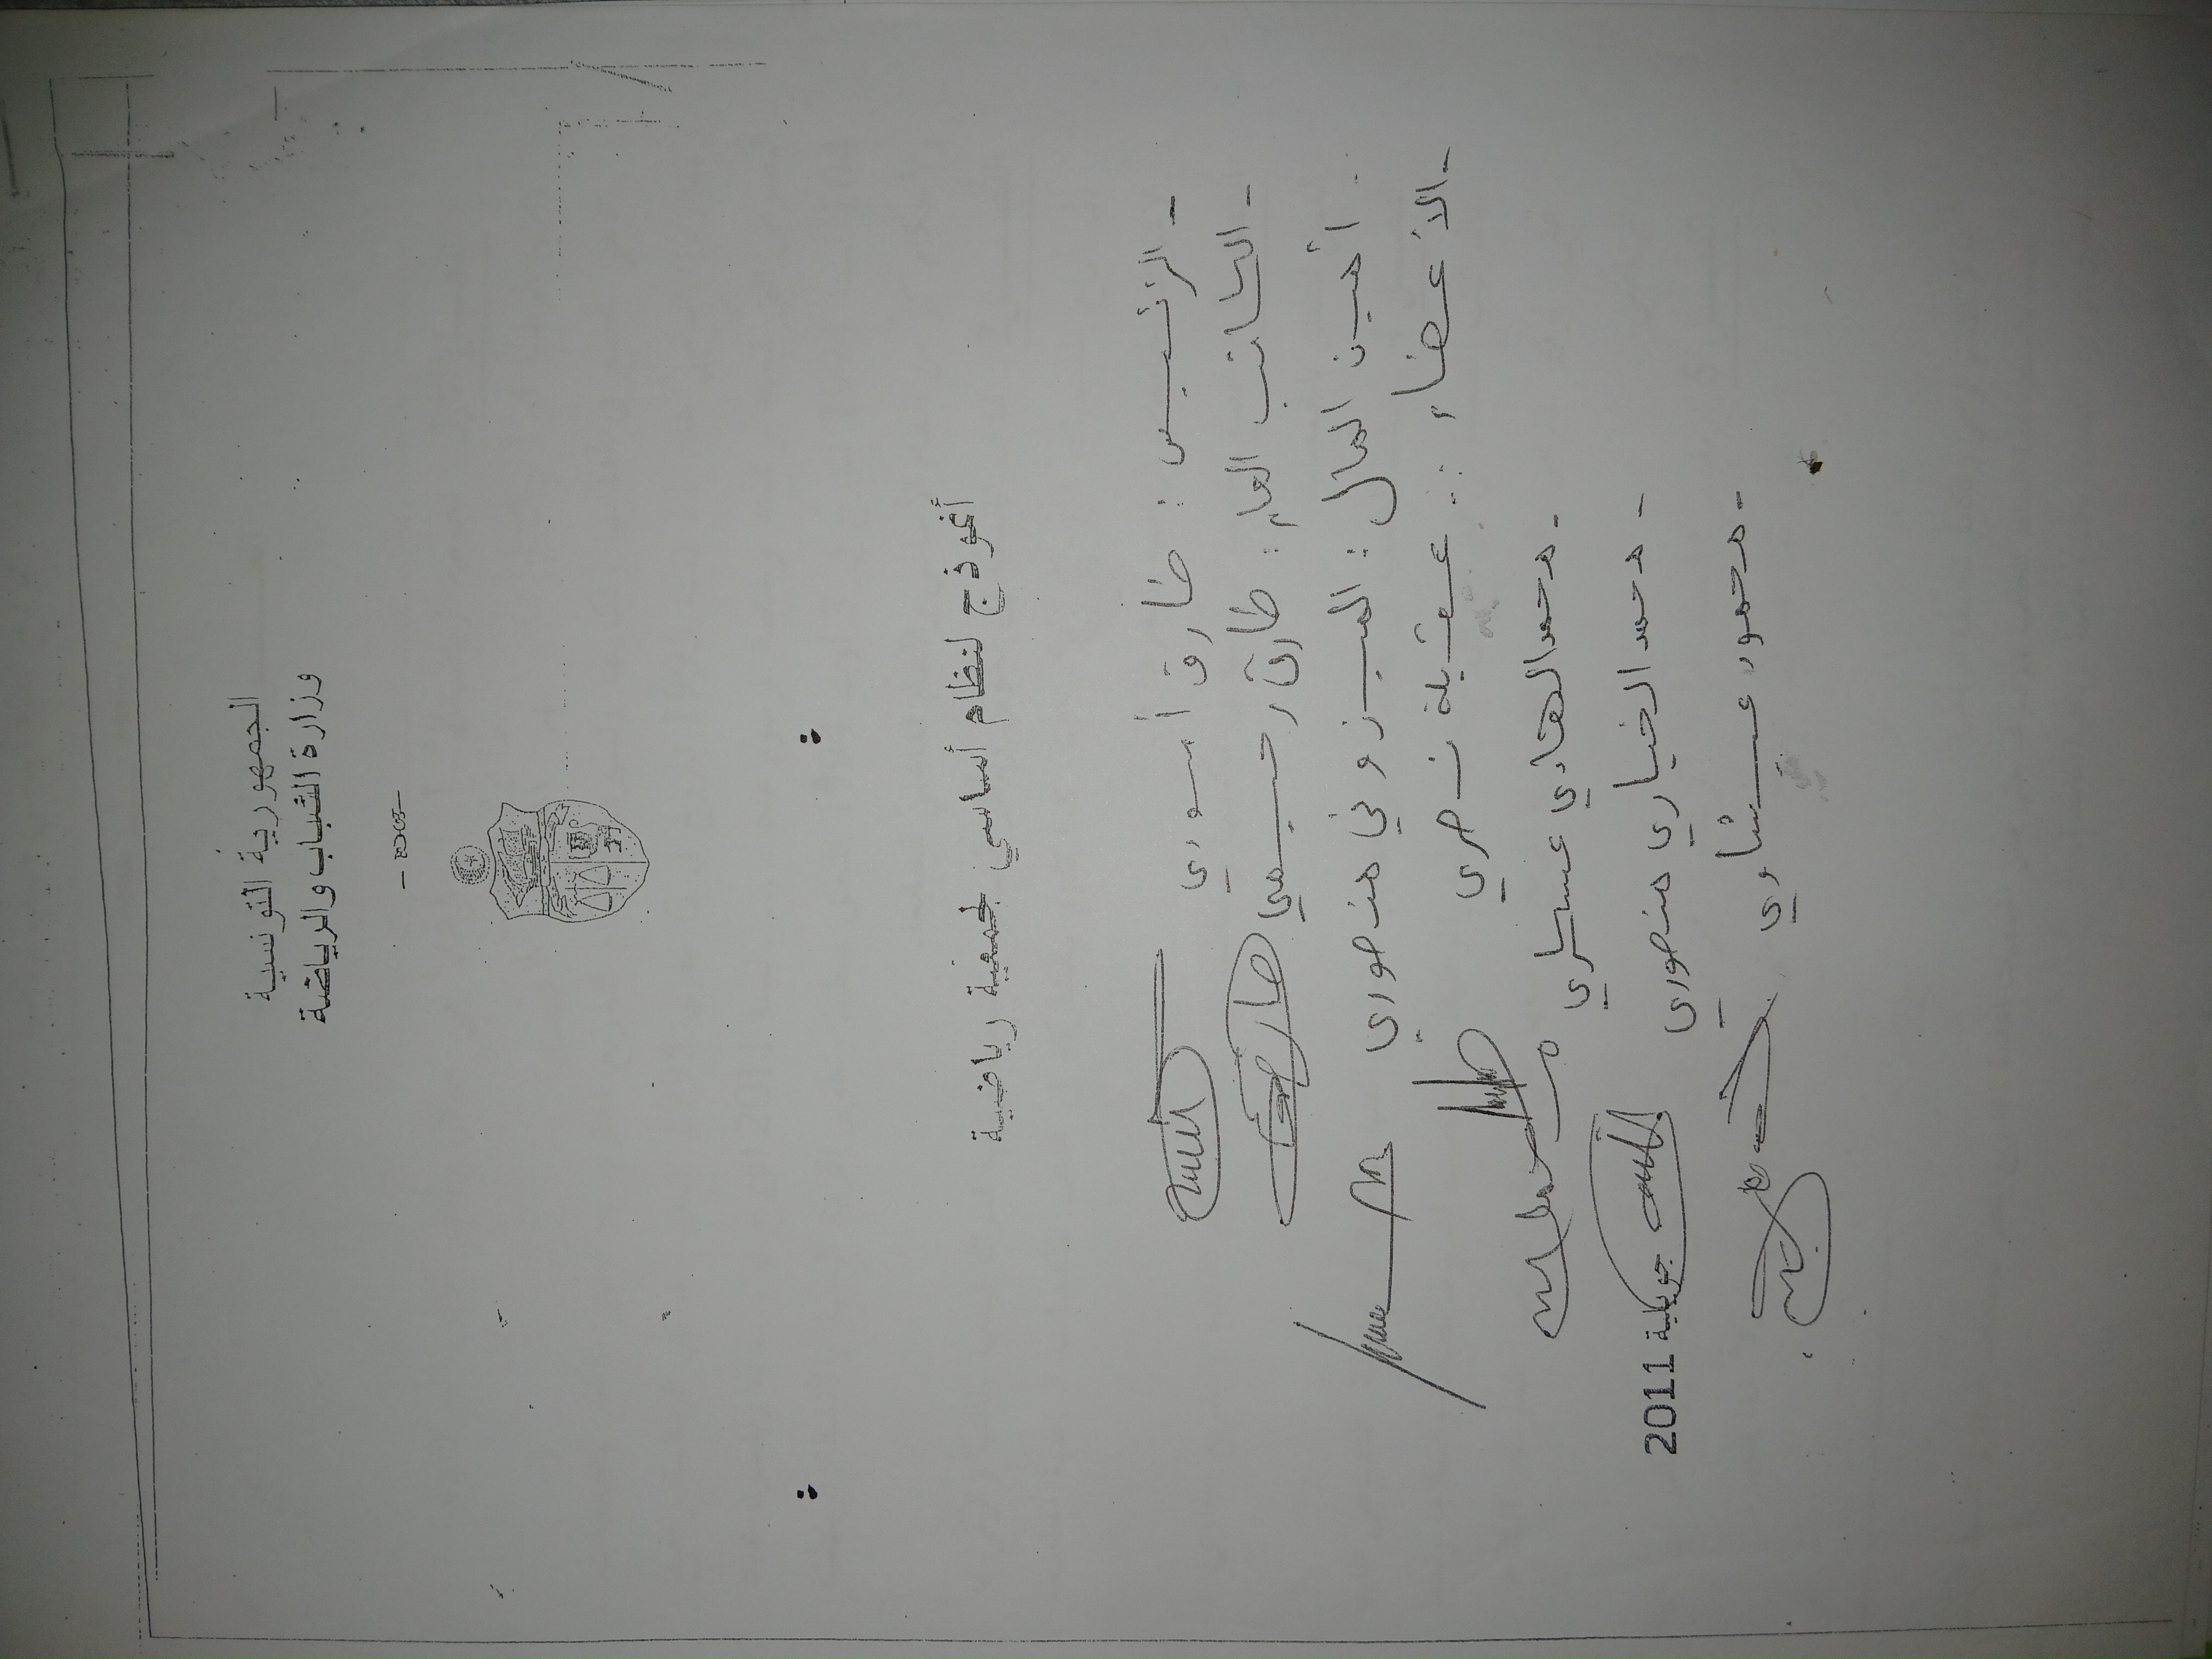 الجمهورية التونسية
وزارة الشباب والرياضة
أنموذج لنظام أساسي لجمعية رياضية
- الرئيس : طارق أسودي
- الكاتب العام : طارق رحيمي
أمين المال : الميزوني منصوري
- الأعضاء : عقيلة نصري
- محمد الهادي عسكري
- محمد الخياري منصوري
- محمود عشاوي
جويلية 2011